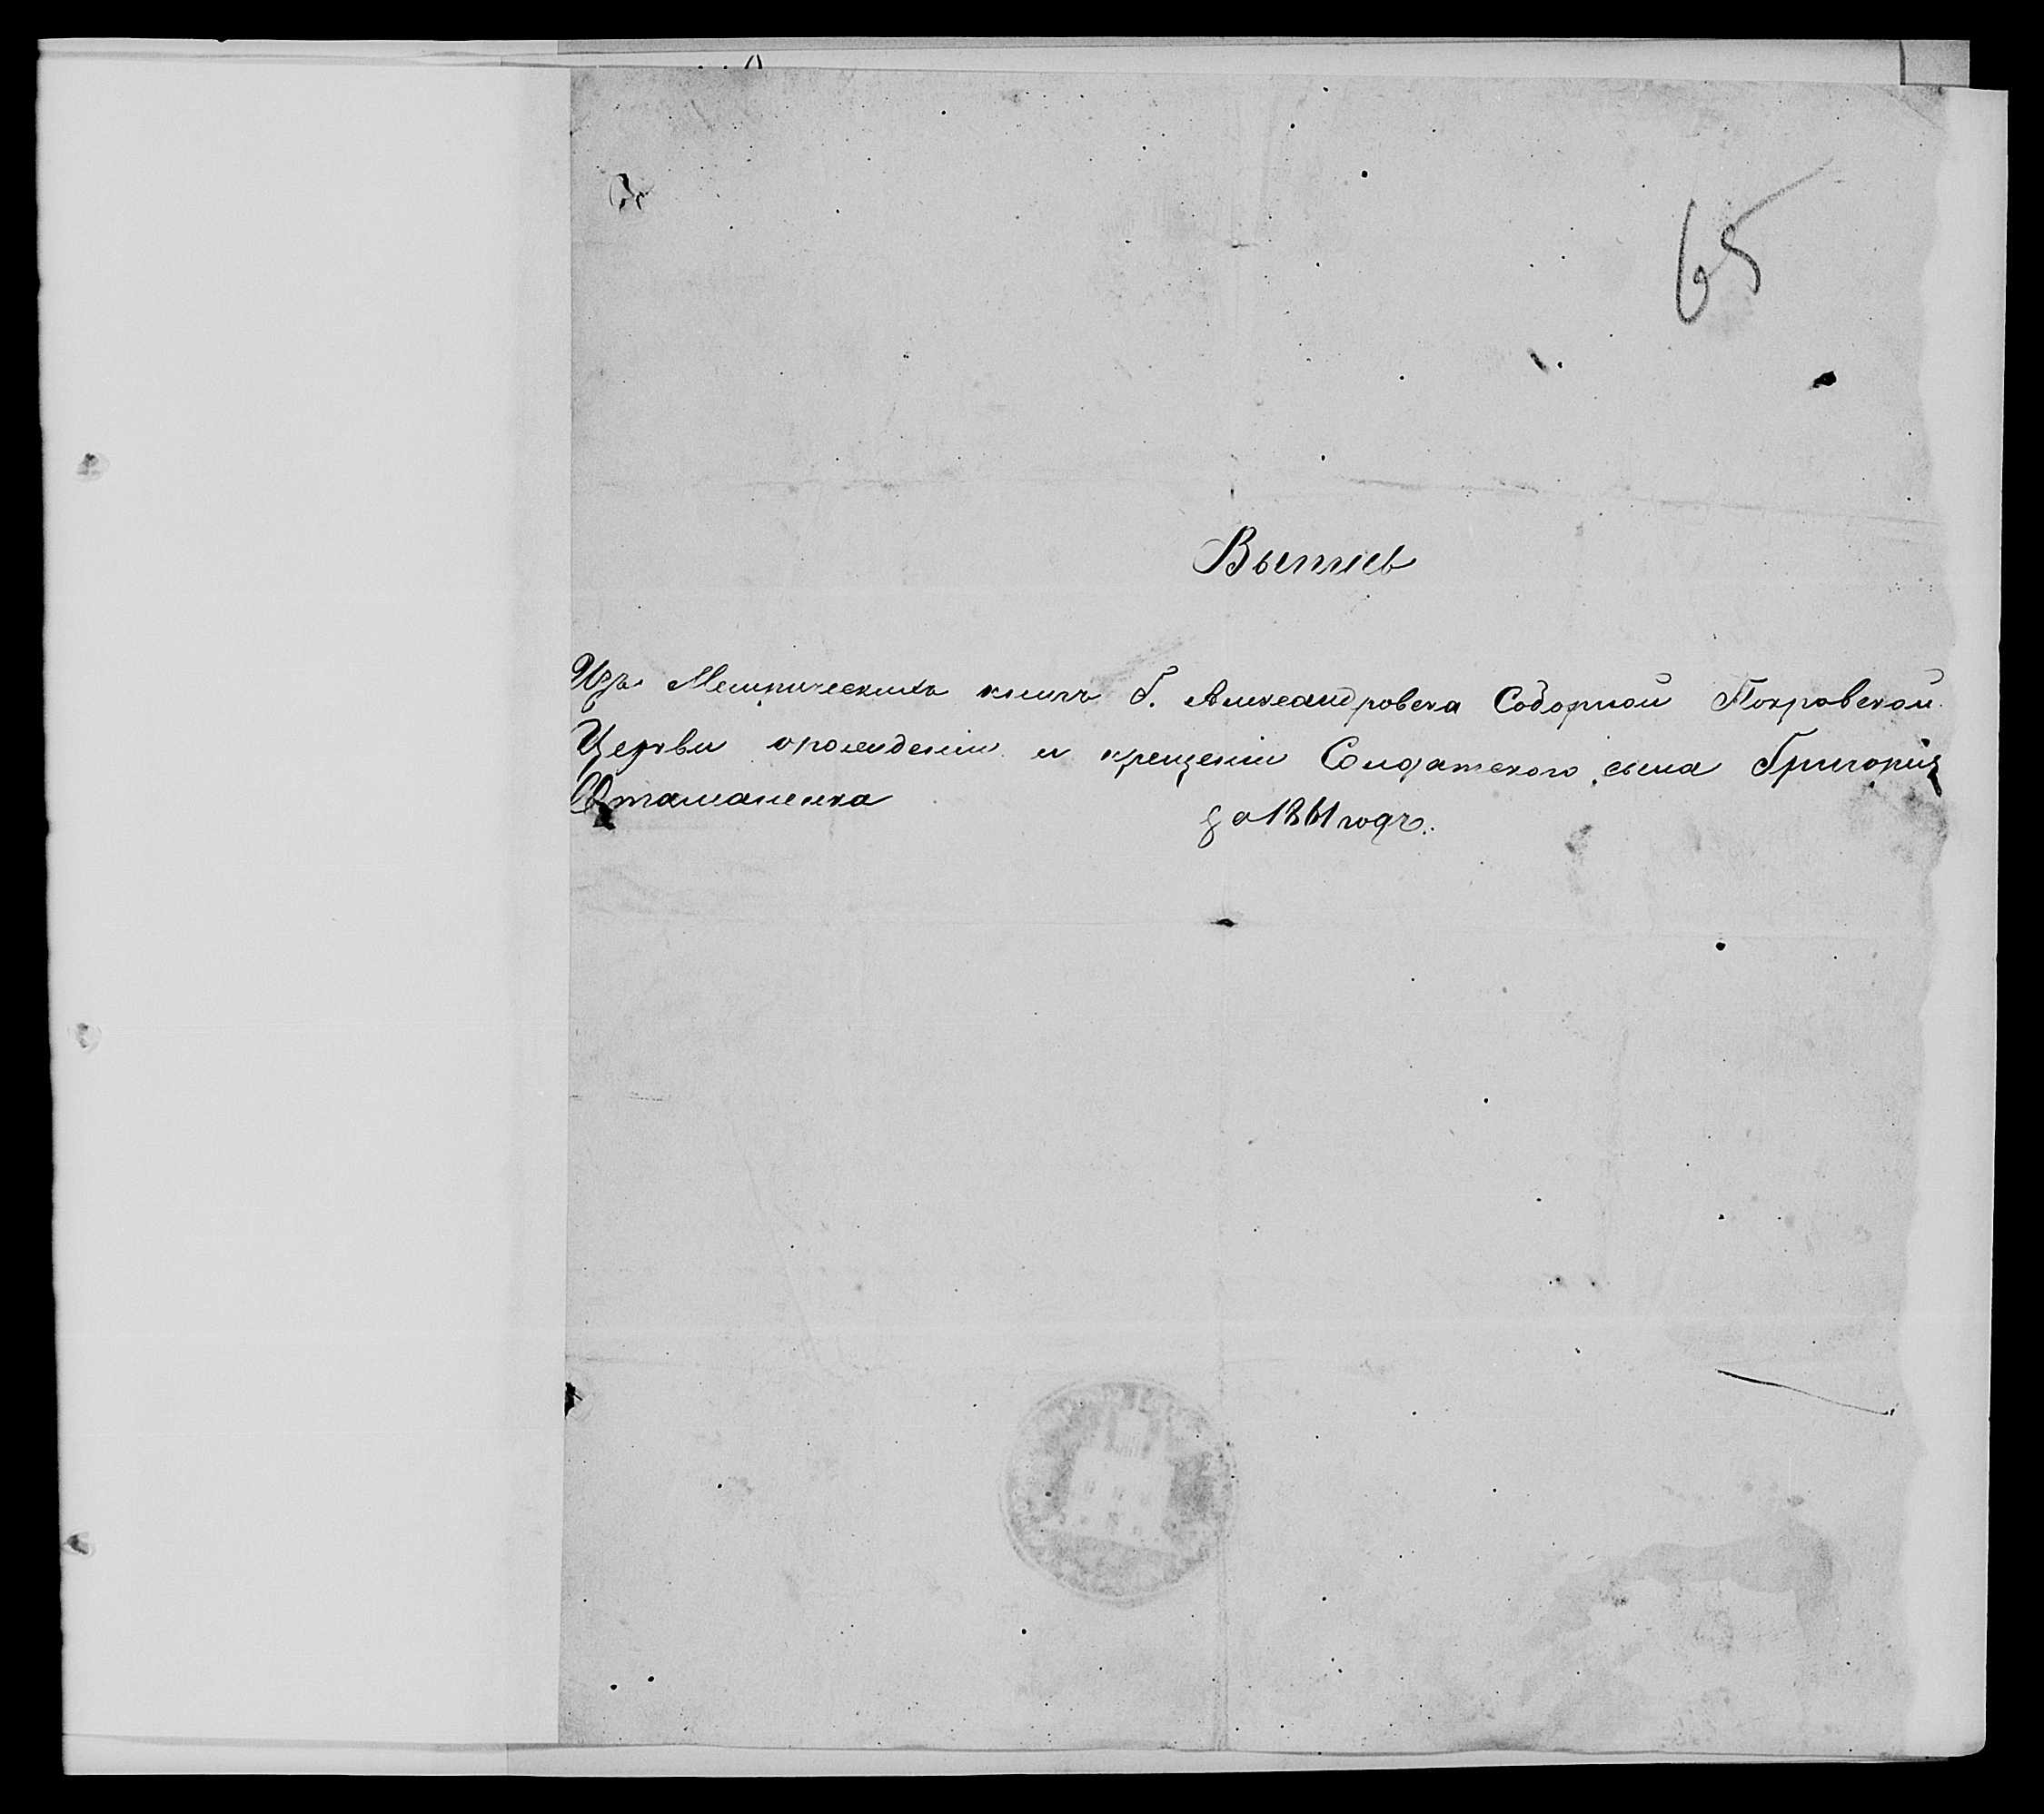 65
Выпись
Изъ Метрическихъ книгъ г. Александровска Соборной Покровской
Церкви о рождении и крещении Солдатского сына Григория
Отаманенка
за 1861 годъ.